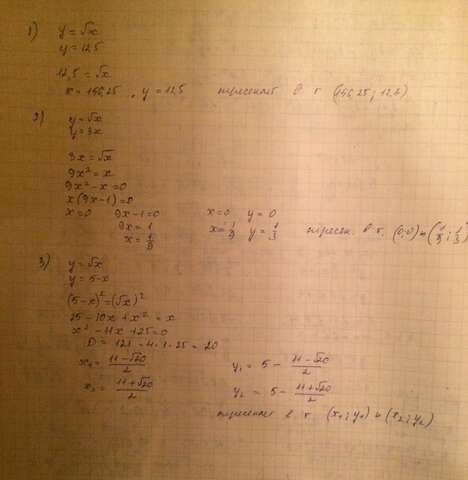 1) y = √x
y = 12,5
12,5 = √x
x = 156,25 , y = 12,5 пересекает в т (156,25 ; 12,5)
2) y = √x
y = 3x
3x = √x
9x² = x
9x² - x = 0
x(9x-1) = 0
x = 0 9x-1=0 x=0 y=0
9x = 1 x = 1/9 y = 1/3 пересек. в т. (0;0) и (1/9 ; 1/3)
x = 1/9
3) y = √x
y = 5-x
(5-x)² = (√x)²
25 - 10x + x² = x
x² - 11x + 25 = 0
D = 121 - 4·1·25 = 20 20
x₁ = (11-√20)/2 y₁ = 5 - (11-√20)/2
x₂ = (11+√20)/2 y₂ = 5 - (11+√20)/2
пересекает в т. (x₁ ; y₁) и (x₂ ; y₂)